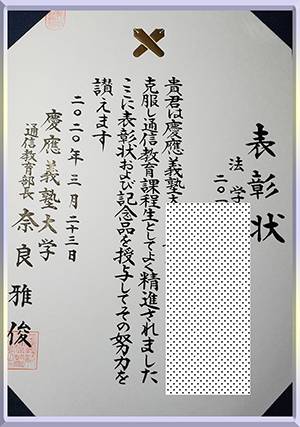 表彰状
法学
二〇一
貴君は慶應義塾大
克服し通信教育課程生としてよく精進されました
ここに表彰状および記念品を授与してその努力を
讃えます
二〇二〇年三月二十三日
慶應義塾大学
通信教育部長 奈良雅俊